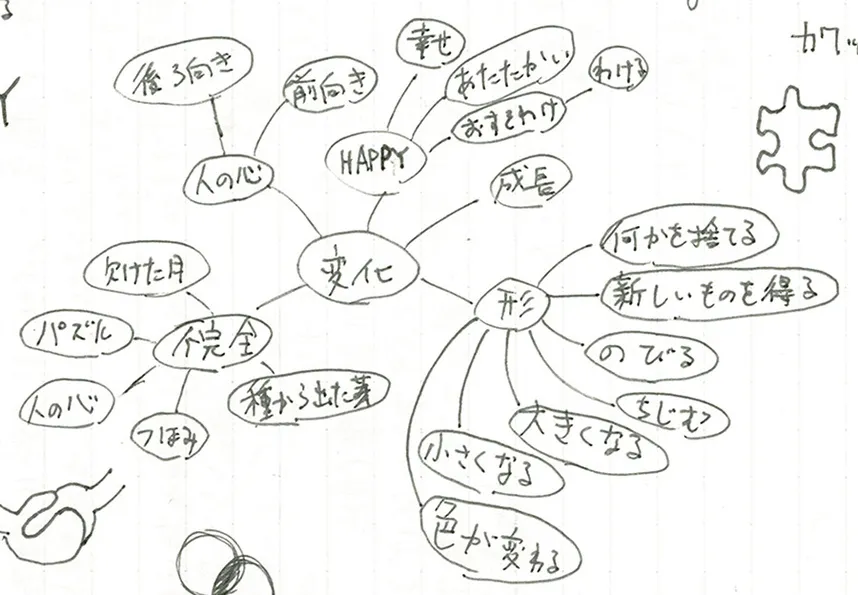 後ろ向き
前向き
幸せ
あたたかい
わける
おすそわけ
HAPPY
人の心
成長
変化
何かを捨てる
新しいものを得る
形
のびる
ちじむ
大きくなる
小さくなる
色が変わる
欠けた月
パズル
不完全
人の心
つぼみ
種から出た芽